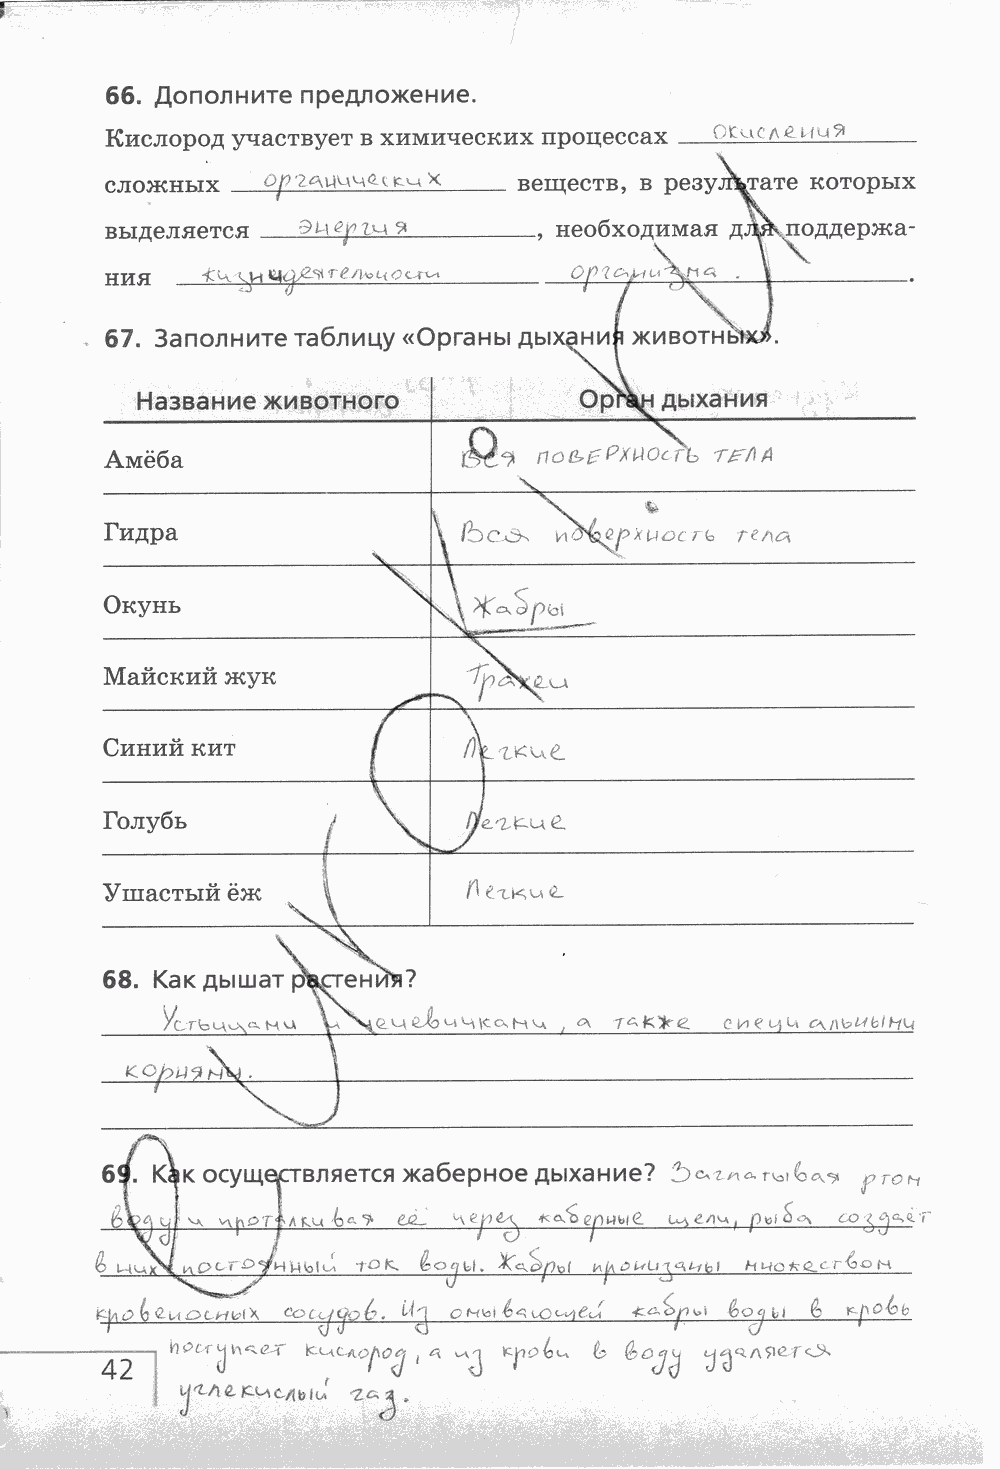 66. Дополните предложение.
Кислород участвует в химических процессах окисления
сложных органических веществ, в результате которых
выделяется энергия, необходимая для поддержа-
ния жизнедеятельности организма.
67. Заполните таблицу «Органы дыхания животных».
Название животного Орган дыхания
Амёба Вся поверхность тела
Гидра Вся поверхность тела
Окунь Жабры
Майский жук Трахеи
Синий кит Легкие
Голубь Легкие
Ушастый ёж Легкие
68. Как дышат растения?
Устьицами и чечевичками, а также специальными
корнями.
69. Как осуществляется жаберное дыхание? Заглатывая ртом
воду и проталкивая её через жаберные щели, рыба создаёт
в них постоянный ток воды. Жабры пронизаны множеством
кровеносных сосудов. Из омывающей жабры воды в кровь
поступает кислород, а из крови в воду удаляется
углекислый газ.
42